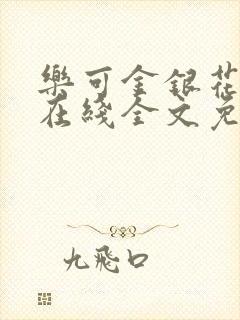 樂可金銀花
在綫全文免
九飛口